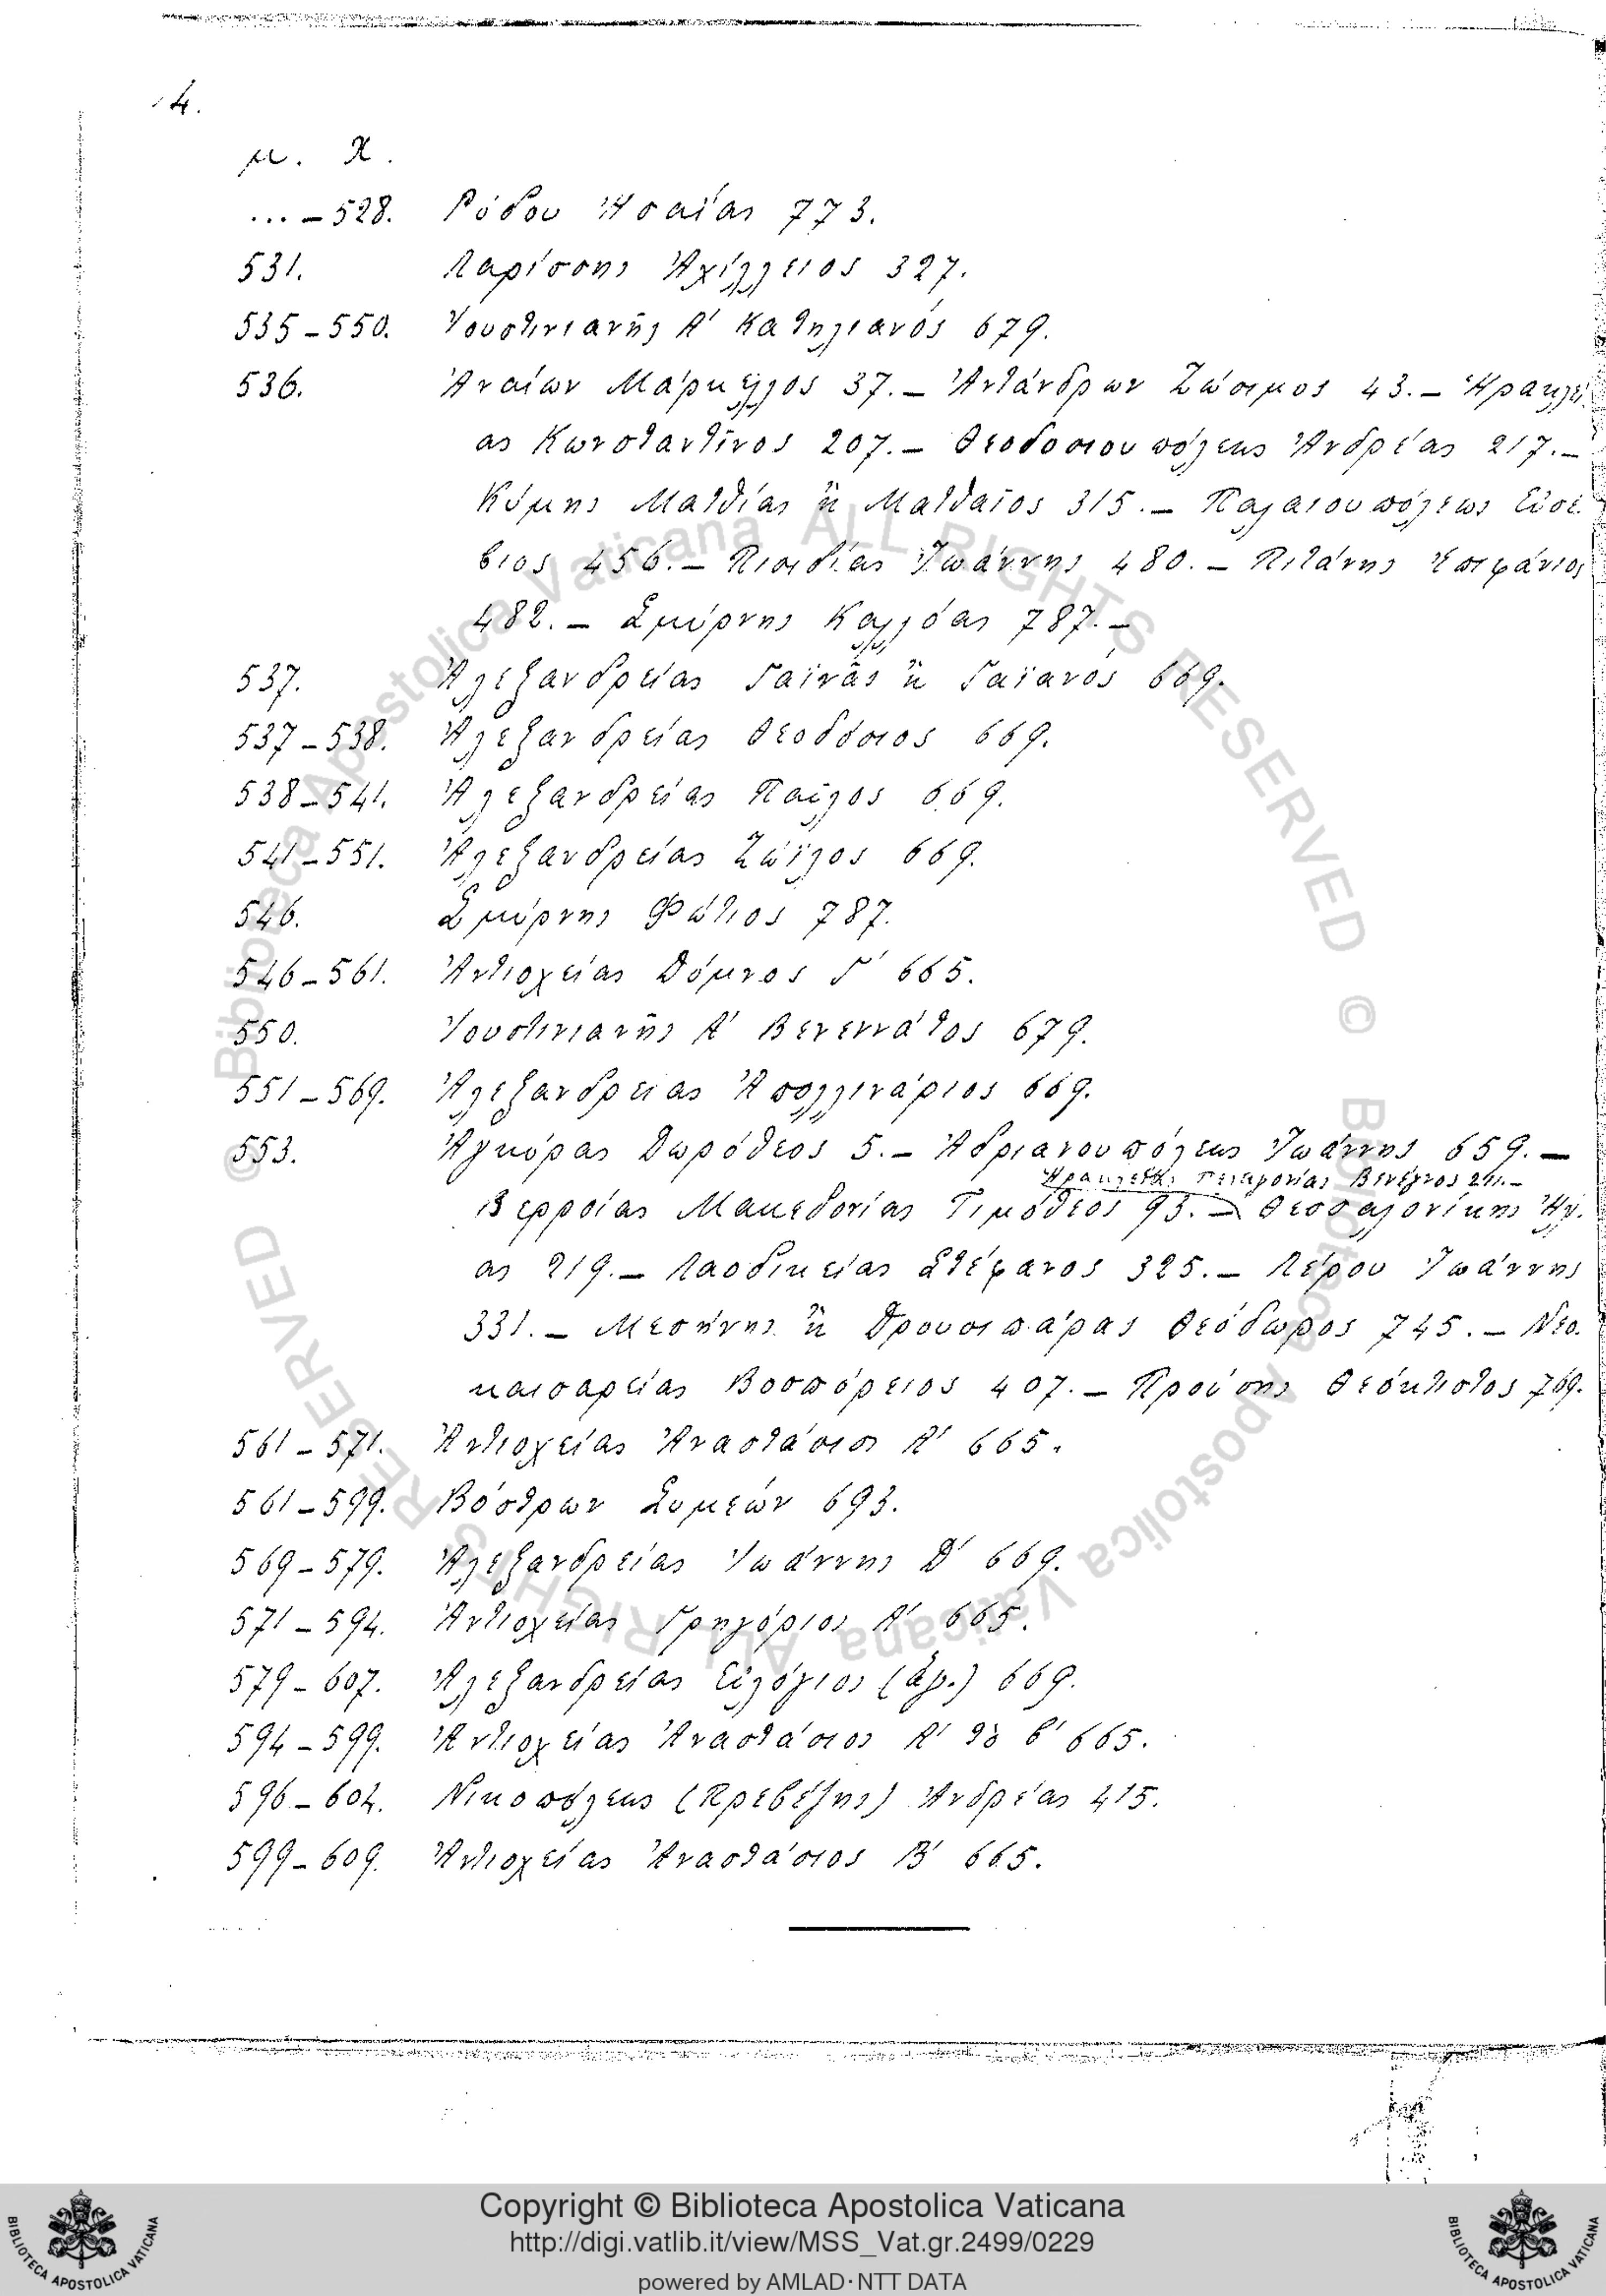 4.
μ. Χ.
...–528. Ρόδου Ἠσαΐας 773.
531. Λαρίσσης Ἀχίλλειος 327.
535–550. Ἰουστινιανῆς Α′ Κατηλιανός 679.
536. Ἀναίων Μάρκελλος 37.– Ἀντάνδρων Ζώσιμος 43.– Ἡρακλεί-
ας Κωνσταντῖνος 207.– Θεοδοσιουπόλεως Ἀνδρέας 217.–
Κύμης Ματθίας ἢ Ματθαῖος 315.– Παλαιουπόλεως Εὐσέ-
βιος 456.– Πισιδίας Ἰωάννης 480.– Πιτάνης Ἐπιφάνιος
482.– Σμύρνης Καλλόας 787.–
537. Ἀλεξανδρείας Γαϊνᾶς ἢ Γαϊανός 669.
537–538. Ἀλεξανδρείας Θεοδόσιος 669.
538–541. Ἀλεξανδρείας Παῦλος 669.
541–551. Ἀλεξανδρείας Ζώϊλος 669.
546. Σμύρνης Φώτιος 787.
546–561. Ἀντιοχείας Δόμνος Γ′ 665.
550. Ἰουστινιανῆς Α′ Βενεννάτος 679.
551–569. Ἀλεξανδρείας Ἀπολλινάριος 669.
553. Ἀγκύρας Δωρόθεος 5.– Ἀδριανουπόλεως Ἰωάννης 659.–
Ἡρακλείας Πελαγονίας Βενίγνος 211.–
Βερροίας Μακεδονίας Τιμόθεος 93.– Θεσσαλονίκης Ἠλί-
ας 219.– Λαοδικείας Στέφανος 325.– Λέρου Ἰωάννης
331.– Μεσήνης ἢ Δρουσιπάρας Θεόδωρος 745.– Νεο-
καισαρείας Βοσπόρειος 407.– Προύσης Θεόκτιστος 769.
561–571. Ἀντιοχείας Ἀναστάσιος Α′ 665.
561–599. Βόστρων Συμεών 693.
569–579. Ἀλεξανδρείας Ἰωάννης Δ′ 669.
571–594. Ἀντιοχείας Γρηγόριος Α′ 665.
579–607. Ἀλεξανδρείας Εὐλόγιος (ἅγ.) 669.
594–599. Ἀντιοχείας Ἀναστάσιος Α′ τὸ β′ 665.
596–602. Νικοπόλεως (Πρεβέζης) Ἀνδρέας 415.
599–609. Ἀντιοχείας Ἀναστάσιος Β′ 665.
Biblioteca Apostolica Vaticana ALL RIGHTS RESERVED ©
Biblioteca Apostolica Vaticana ALL RIGHTS RESERVED ©
Copyright © Biblioteca Apostolica Vaticana
http://digi.vatlib.it/view/MSS_Vat.gr.2499/0229
powered by AMLAD·NTT DATA
BIBLIOTECA APOSTOLICA VATICANA
BIBLIOTECA APOSTOLICA VATICANA